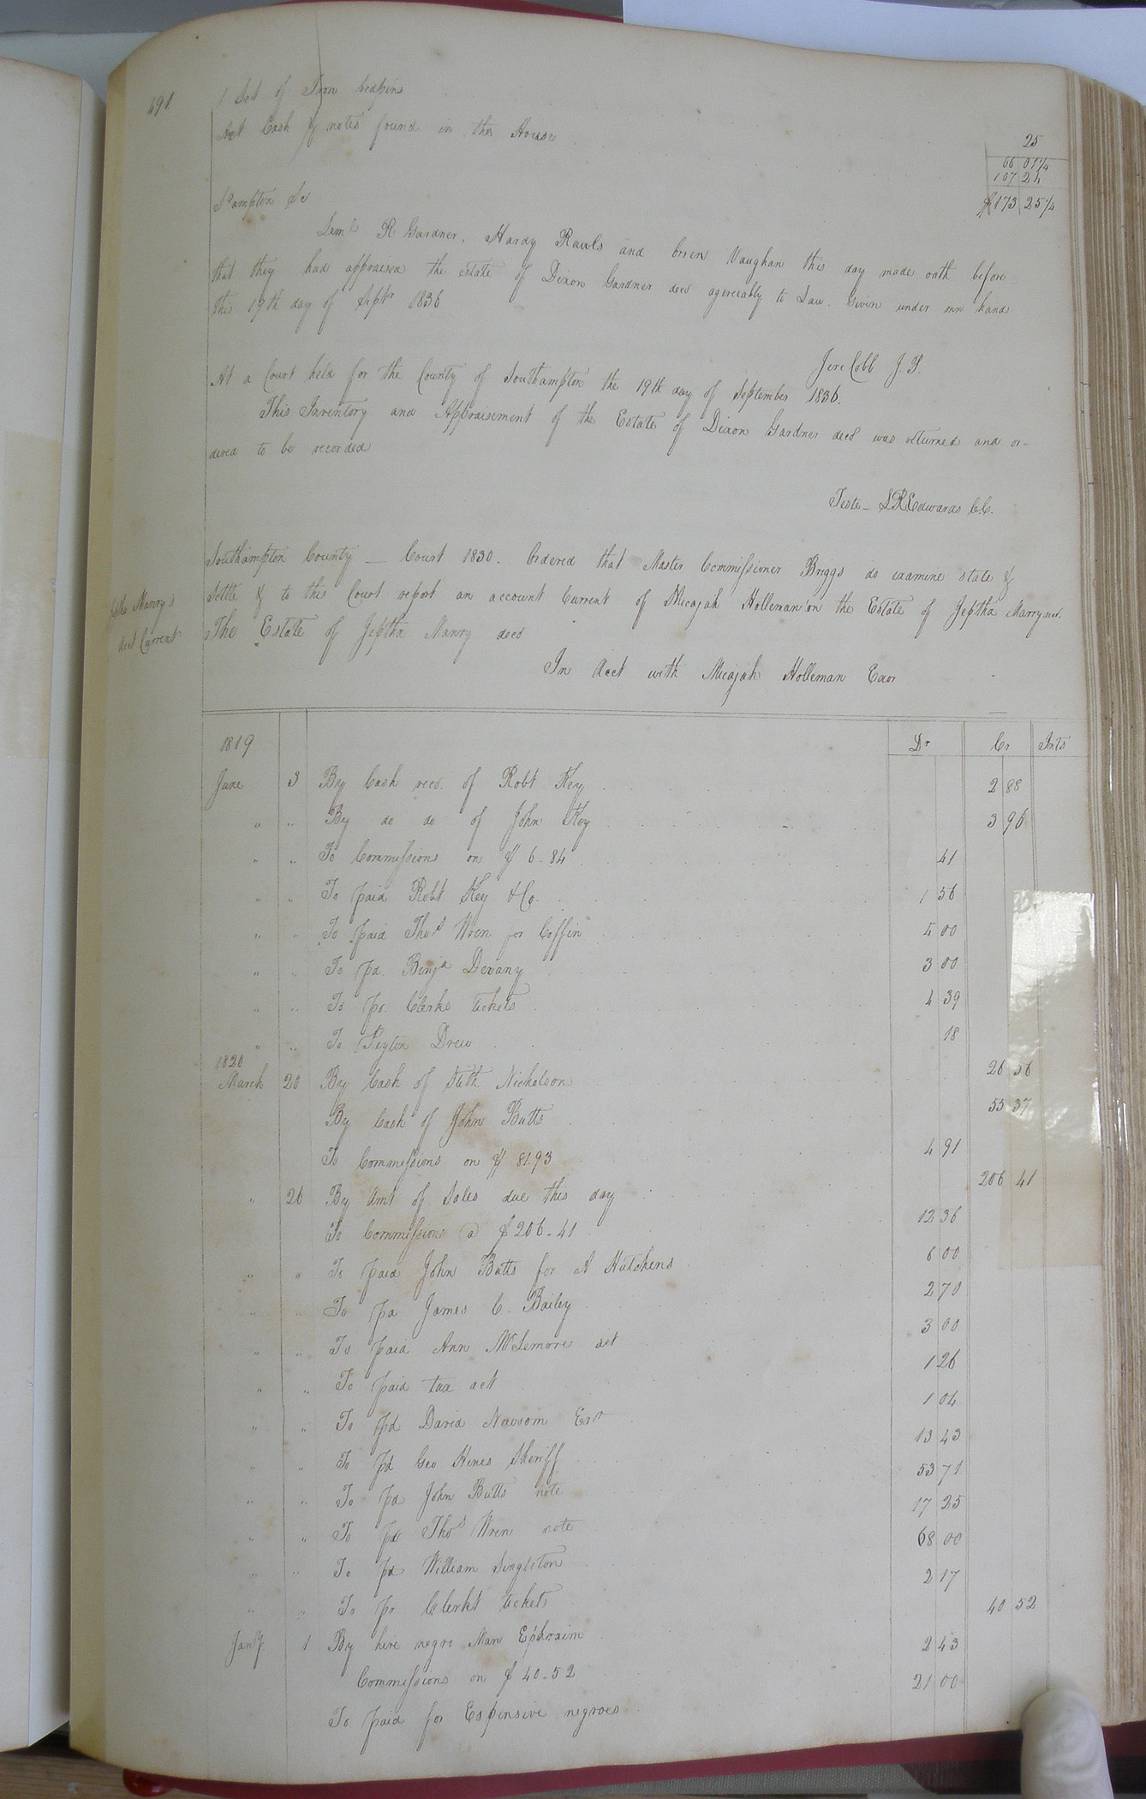 491
1 Set of Iron
Act Cash & notes found in the House 25
66 01¼
107 24
$173 25¼
S°ampton Sc
Saml R Gardner, Hardy Rawls and Vaughan this day made oath before
that they had appraised the estate of Dixon Gardner decd agreeably to Law. Given under my hand
this 19th day of Septr 1836
Jere Cobb J.P.
At a Court held for the County of Southampton the 19th day of September 1836.
This Inventory and Appraisement of the Estate of Dixon Gardner decd was returned and or-
dered to be recorded
Teste _ L.R. Edwards C.C.
Southampton County _ Court 1830. Ordered that Master Commissioner Briggs do examine state &
Settle & to this Court report an account Current of Micajah Holleman on the Estate of Jeptha Manry decd.
Manry's
Act Current
The Estate of Jeptha Manry decd
In Acct with Micajah Holleman Exor
1819 Dr Cr Ints
June 3 By Cash recd. of Robt Key 2 88
" " By do do of John Key 3 96
" " To Commissions on $ 6-84 41
" " To paid Robt Key & Co. 1 56
" " To paid Thos Wren for Coffin 5 00
" " To pd. Benja Devany 3 00
" " To pr. Clerks tickets 4 39
" " To Peyton Drew 18
1820
March 20 By Cash of Seth Nicholson 26 56
By Cash of John Butts 55 37
To Commissions on $ 81.93 4 91
" 26 By Amt of Sales due this day 206 41
To Commissions @ $206-41 12 36
" " To paid John Butts for A Hutchens 6 00
" " To pd James C. Bailey 2 70
" " To paid Ann McLemore act 3 00
" " To paid tax act 1 26
" " To pd David Newsom Exr 1 04
" " To pd Geo Hines Sheriff 13 43
" " To pd John Butts note 53 71
" " To pd Thos Wren note 17 25
" " To pd William Singleton 68 00
" " To pr Clerks tickets 2 17
Jany 1 By hire negro Man Ephraim 40 52
Commissions on $ 40-52 2 43
To paid for Expensive negroes 21 00